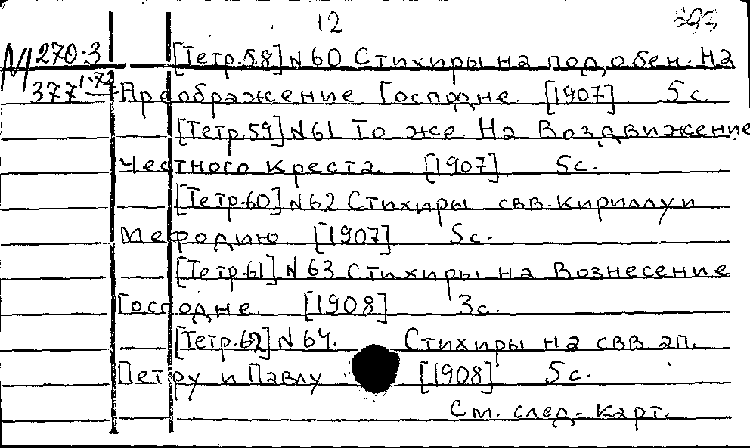 12
M 270.3 [Тетр.58] N60 Стихиры на подобен. На
377 Преображение Господне [1907] 5 с.
[Тетр.59] N61 То же На Воздвижение
Честного Креста. [1907] 5с.
[Тетр.60] N62 Стихиры свв. Кириллу и
Мефодию [1907] 5с.
[Тетр.61] N63 Стихиры на Вознесение
Господне. [1908] 3с.
[Тетр.62] N64. Стихиры на свв. ап.
Петру и Павлу [1908] 5с.
См. след. карт.